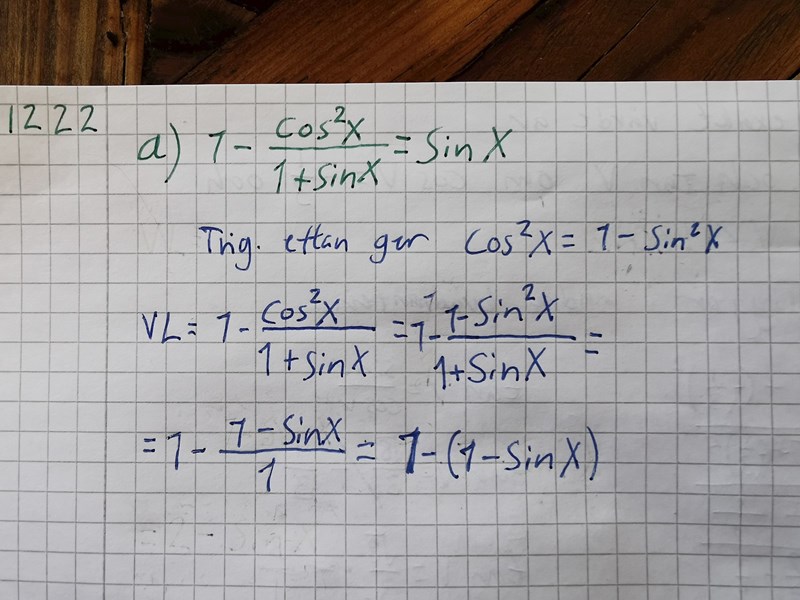 1222
a) 1 - cos²x / (1 + sinx) = sin x
Trig. ettan ger cos²x = 1 - sin²x
VL = 1 - cos²x / (1 + sinx) = 1 - (1 - sin²x) / (1 + sinx) =
= 1 - (1 - sinx) / 1 = 1 - (1 - sinx)